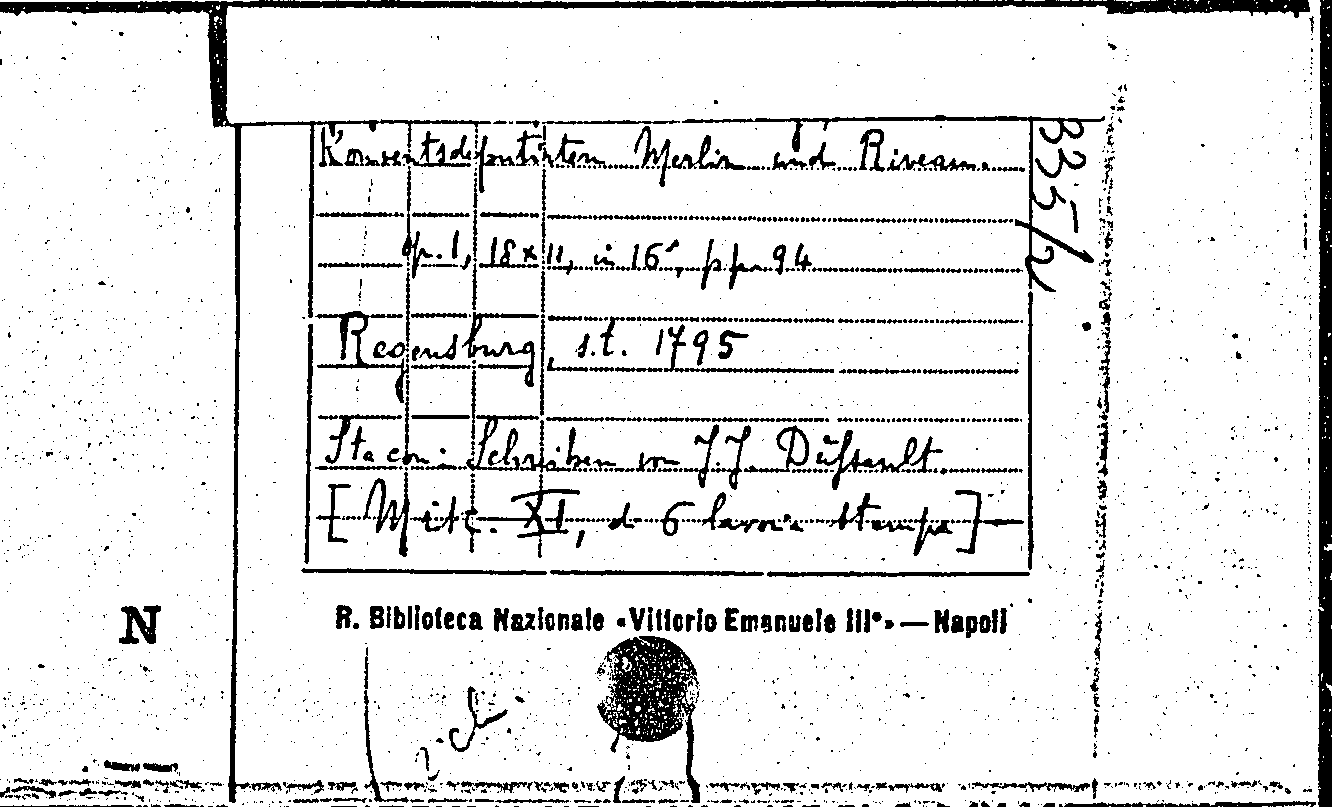 Konventsdeputirten Merlin und Riveau.
p. 1, 18 x 11, in 16°, pp. 94
Regensburg, s.t. 1795
Sta con: Schreiben von J. J. Dußault.
[Misc. XI, di 6 lavori a stampa]
335/2
N
R. Biblioteca Nazionale «Vittorio Emanuele III°» — Napoli